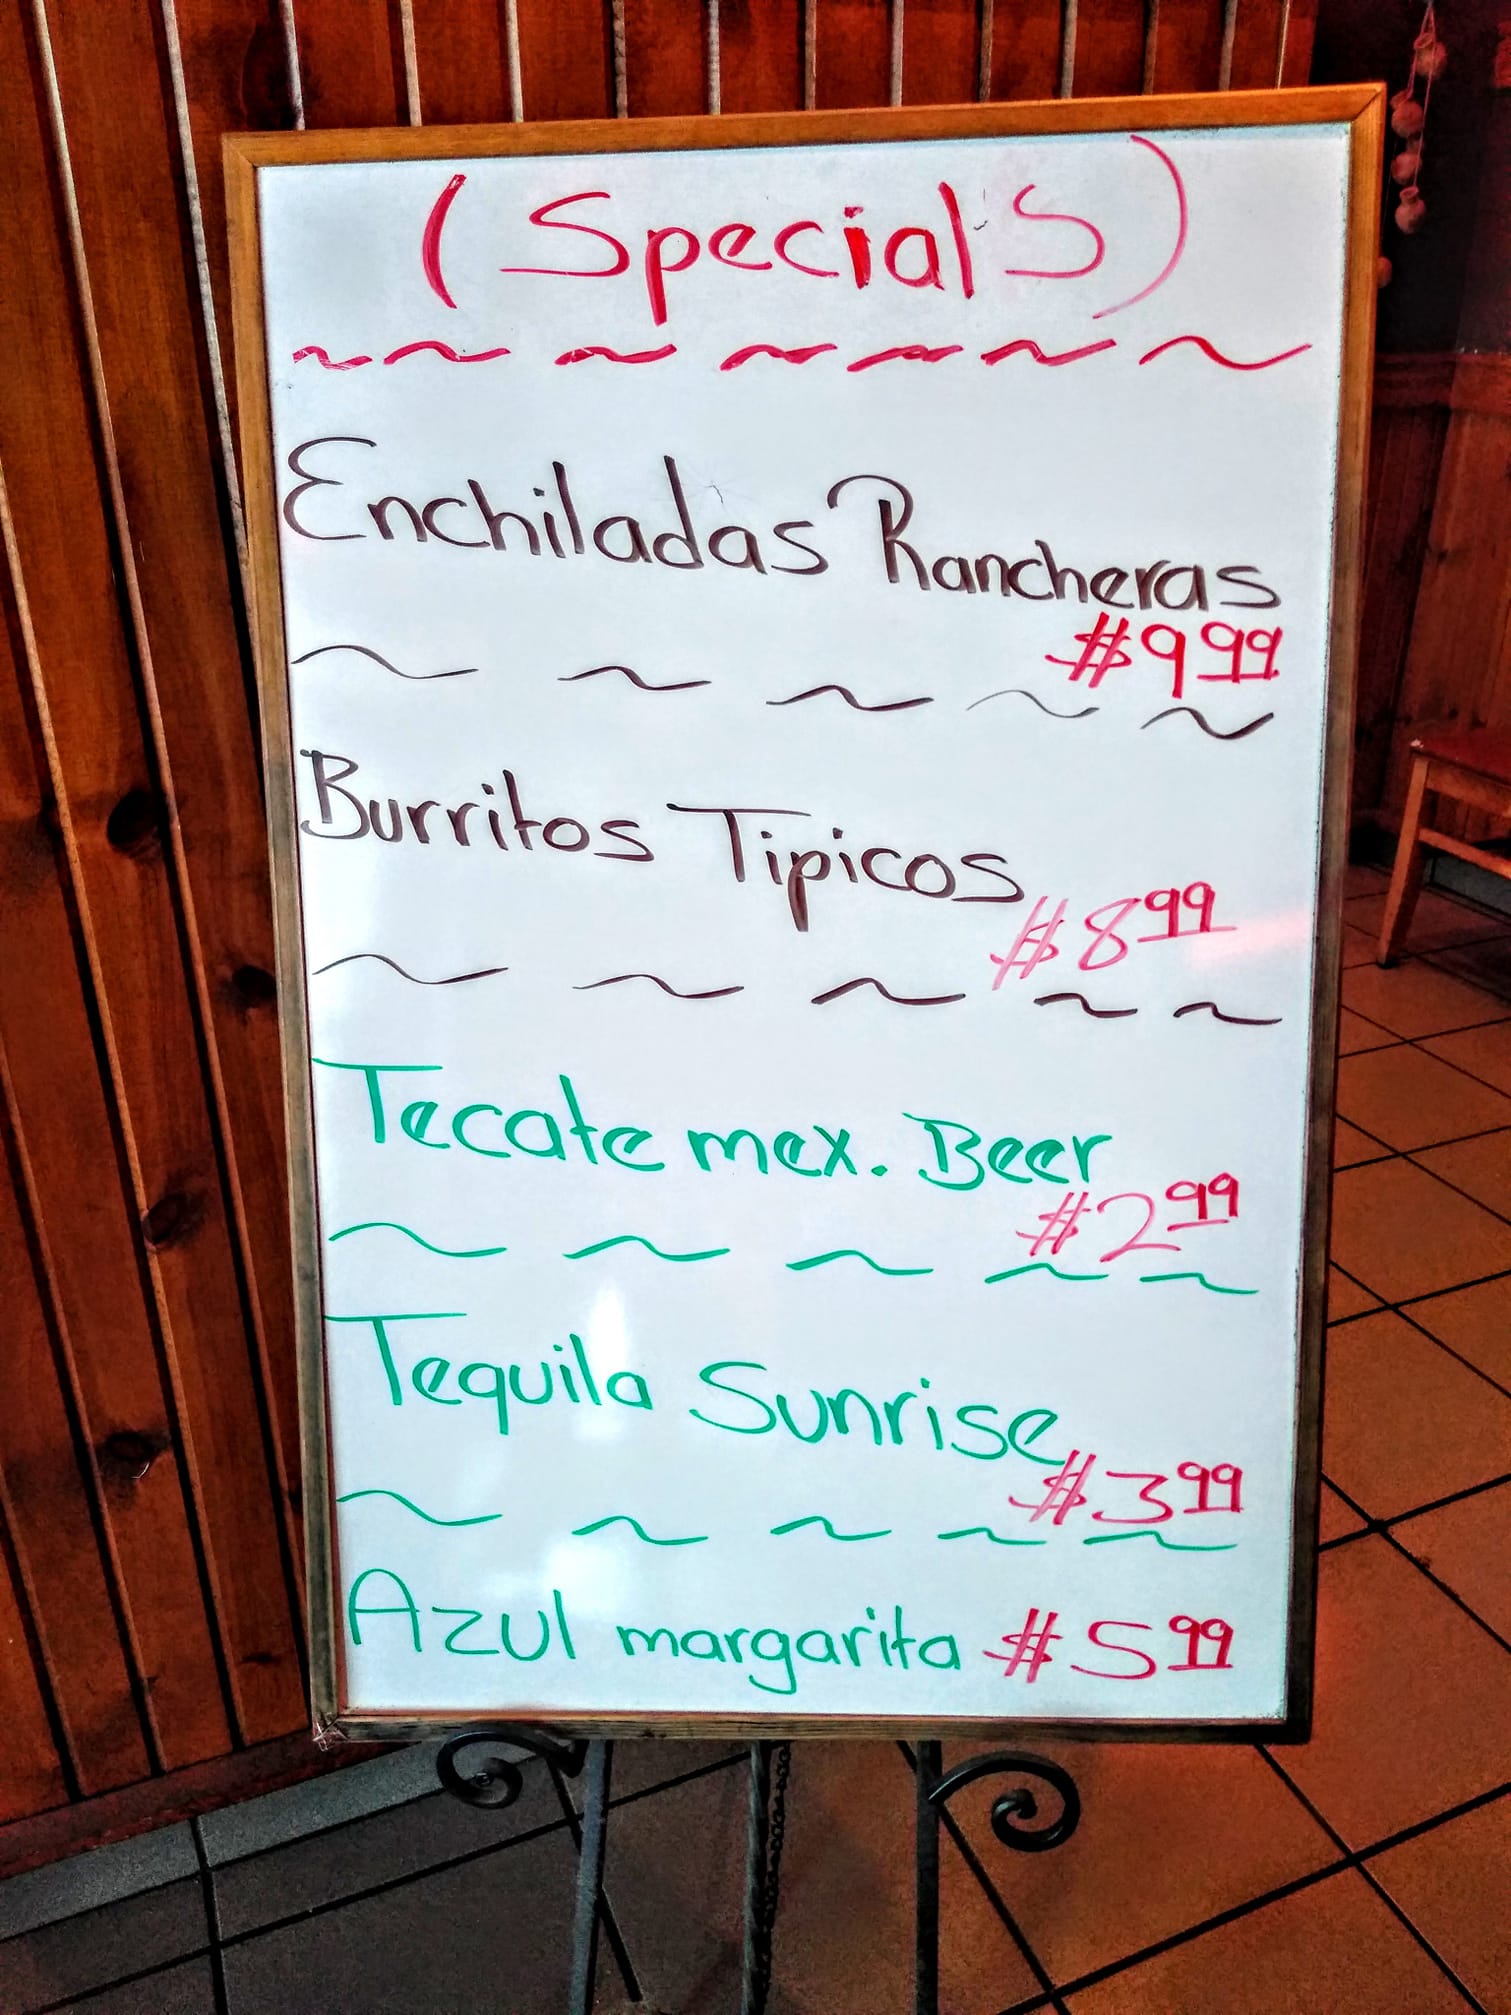 (Special's)
Enchiladas Rancheras
#9.99
Burritos Tipicos
#8.99
Tecate mex. Beer
#2.99
Tequila Sunrise
#3.99
Azul margarita #5.99